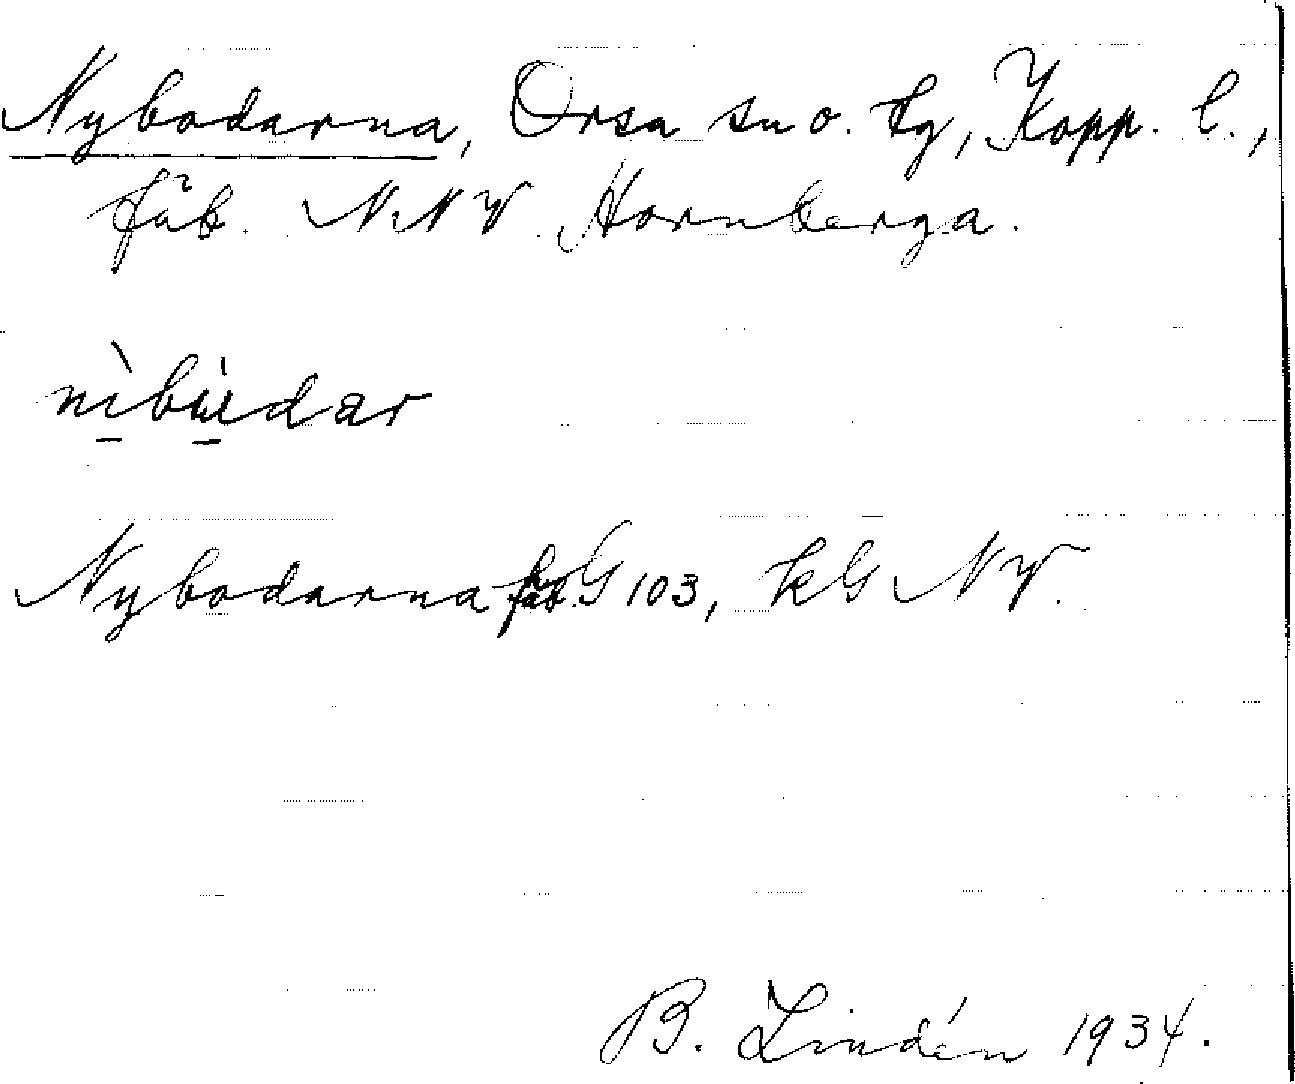 Nybodarna, Orsa sn o. tg, Kopp. l.,
fäb. N.N.V. Hornberga.
nìbùdar
Nybodarna fäb. G 103, kG NV.
B. Lindén 1934.